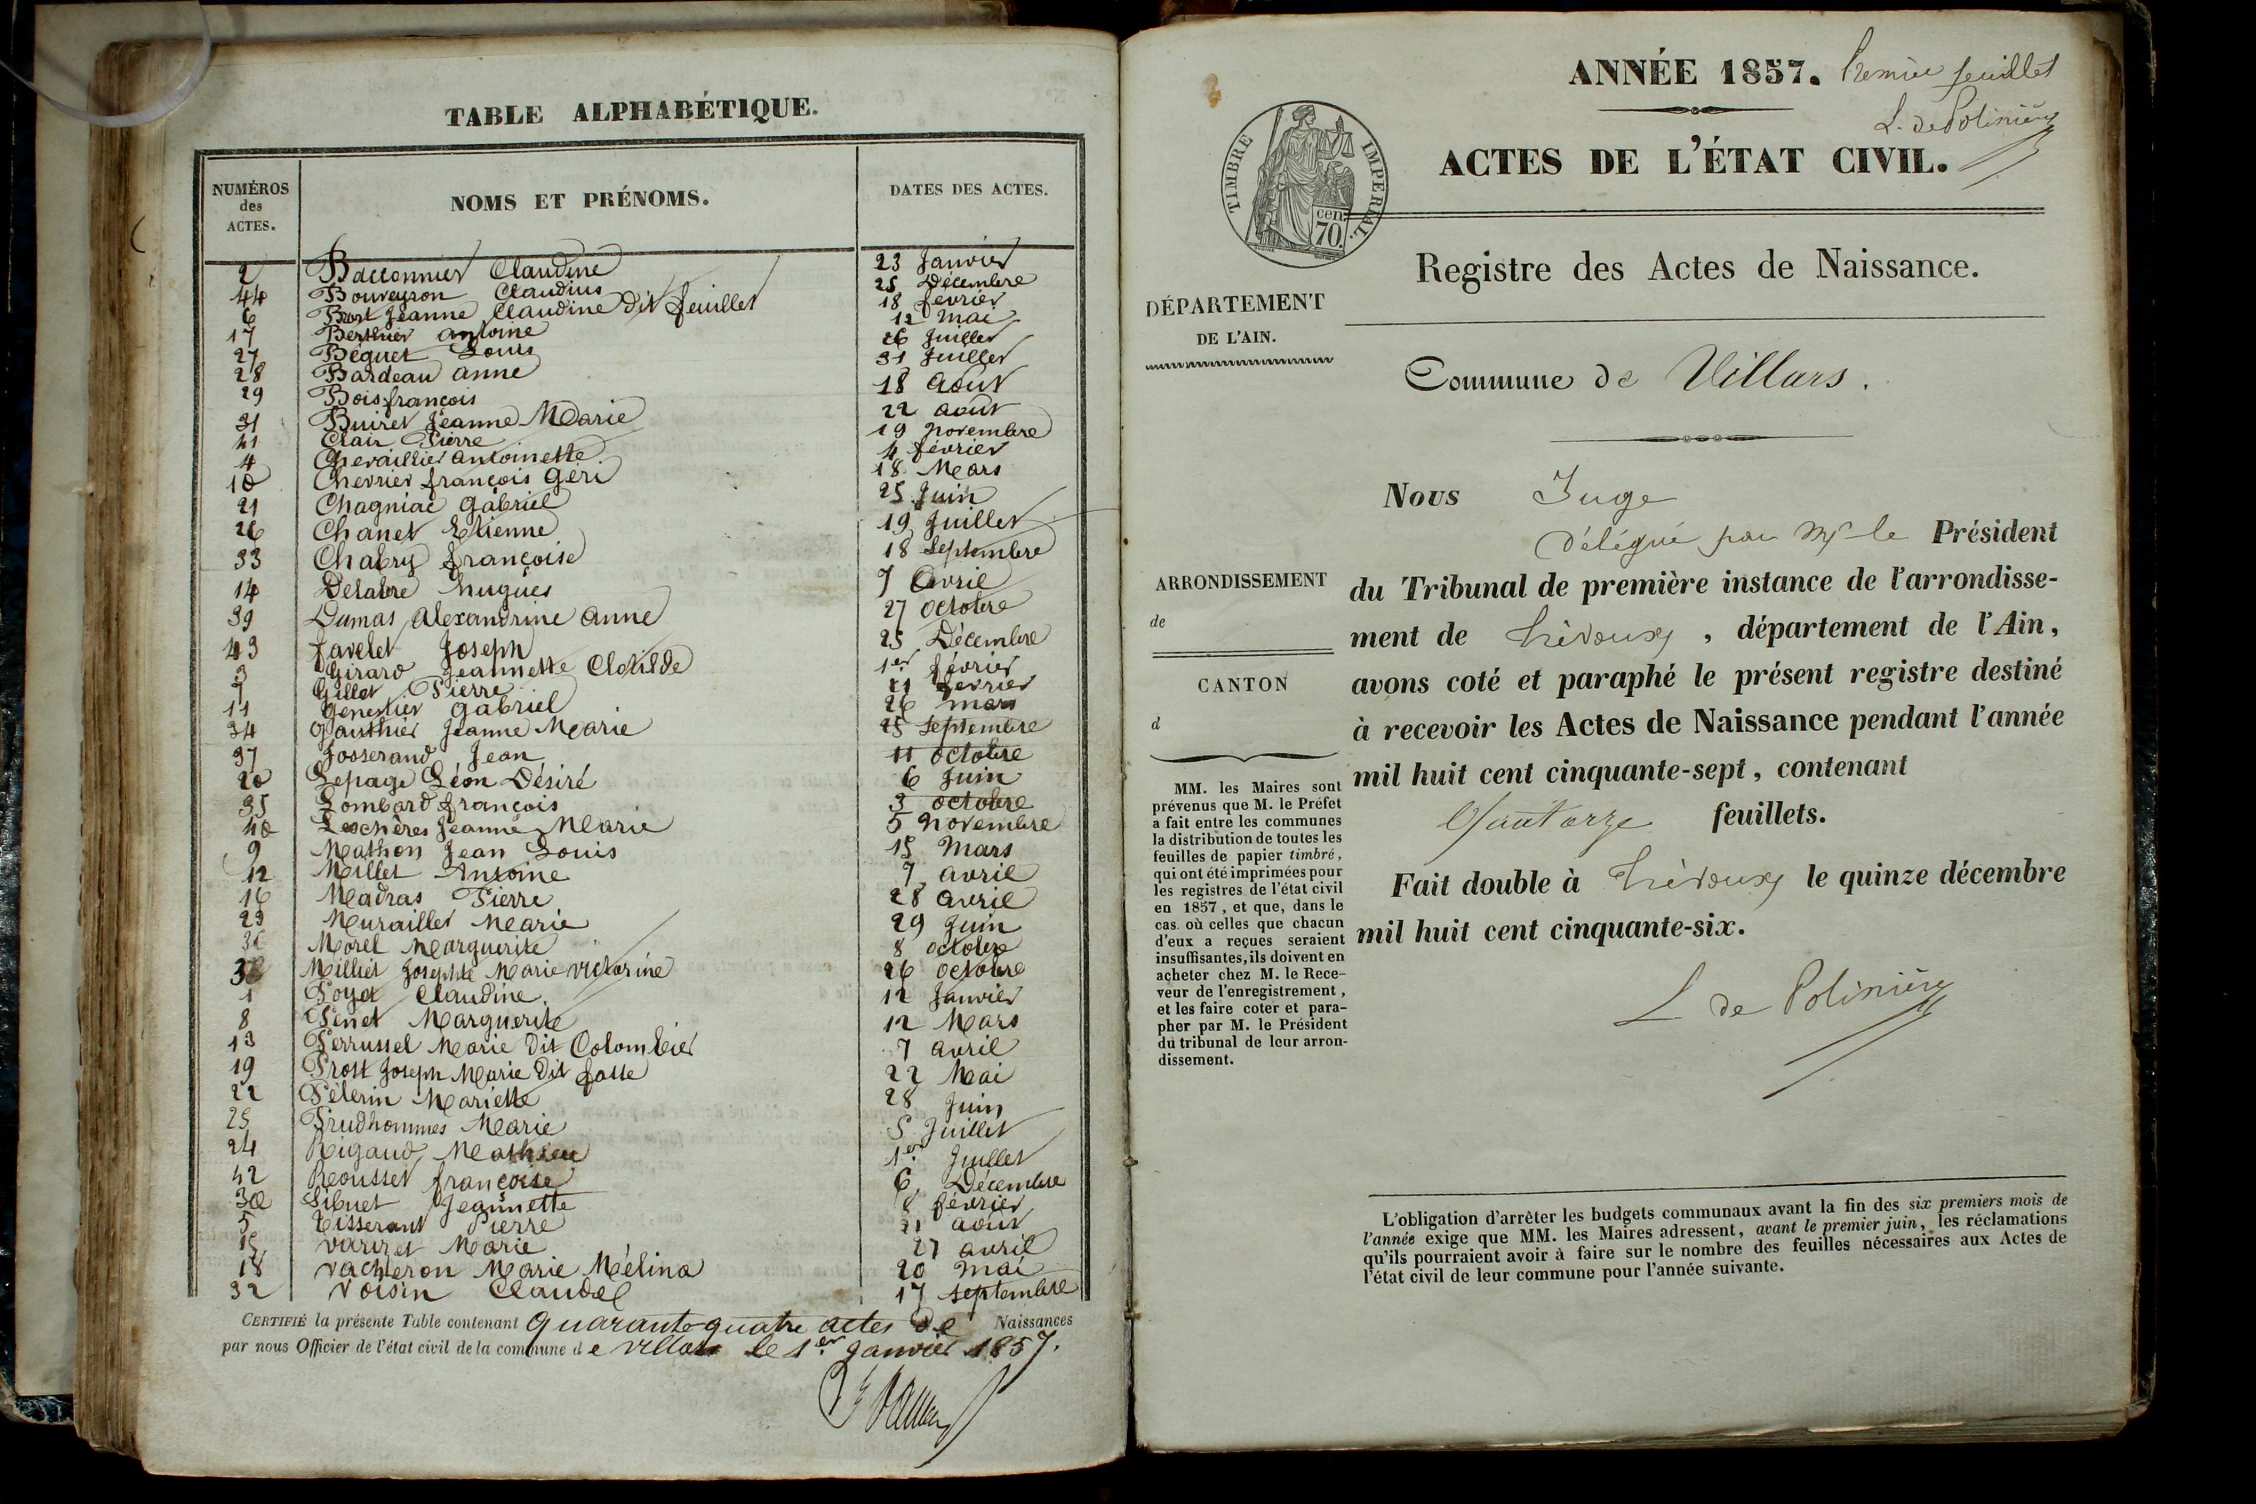 TABLE ALPHABÉTIQUE.
NUMÉROS des ACTES. NOMS ET PRÉNOMS. DATES DES ACTES.
2 Bacconnier Claudine 23 Janvier
44 Bouveyron Claudius 25 Décembre
6 Jeanne Claudine dit feuillet 18 février
17 Berthier antoine 12 mai
27 Béguet Louis 26 Juillet
28 Bardeau anne 31 Juillet
29 Bois françois 18 aout
31 Buiret Jeanne Marie 22 août
41 Clair Pierre 19 novembre
4 Chevaillier antoinette 4 février
10 Chevrier françois Géri 18 Mars
21 Chagniac gabriel 25 Juin
26 Chanet Etienne 19 Juillet
33 Chabry françoise 18 Septembre
14 Delabre hugues 7 avril
39 Dumas Alexandrine anne 27 octobre
43 favelet Joseph 25 Décembre
3 Girard Jeannette Clotilde 1er février
7 Gillet Pierre 21 fevrier
11 Genestier gabriel 26 mars
34 Gauthier Jeanne Marie 25 septembre
37 Josserand Jean 11 octobre
20 Lepage Léon Désiré 6 Juin
35 Lombard françois 3 octobre
40 Leschères Jeanne Marie 5 novembre
9 Mathon Jean Louis 15 mars
12 Millet Antoine 7 avril
16 Madras Pierre 28 avril
23 Muraillet Marie 29 Juin
36 Morel Marguerite 8 octobre
38 Milliet Josephte Marie victorine 26 octobre
1 Poyet Claudine 12 Janvier
8 Penet Marguerite 12 Mars
13 Perrussel Marie dit Colombier 7 avril
19 Prost Joseph Marie dit fatte 22 Mai
22 Pélerin Mariette 28 Juin
25 Prudhommes Marie 5 Juillet
24 Rigaud Mathieu 1er Juillet
42 Rousset françoise 6 Décembre
30 Sibuet Jeannette 8 février
5 tisserant Pierre 21 aout
15 varizet Marie 27 avril
18 vacheron Marie Mélina 20 mai
32 voisin Claude 17 septembre
CERTIFIÉ la présente Table contenant quarante quatre actes de Naissances
par nous Officier de l'état civil de la commune de villars le 1er Janvier 1857.
ANNÉE 1857. Premier feuillet
L. de Polinière
ACTES DE L'ÉTAT CIVIL.
TIMBRE IMPERIAL.
cen. 70.
Registre des Actes de Naissance.
DÉPARTEMENT
DE L'AIN.
Commune de Villars.
Nous Juge
délégué par Mr le Président
du Tribunal de première instance de l'arrondisse-
ment de Trévoux, département de l'Ain,
avons coté et paraphé le présent registre destiné
à recevoir les Actes de Naissance pendant l'année
mil huit cent cinquante-sept, contenant
quatorze feuillets.
Fait double à Trévoux le quinze décembre
mil huit cent cinquante-six.
L de Polinière
ARRONDISSEMENT
de
CANTON
d
MM. les Maires sont
prévenus que M. le Préfet
a fait entre les communes
la distribution de toutes les
feuilles de papier timbré,
qui ont été imprimées pour
les registres de l'état civil
en 1857, et que, dans le
cas. où celles que chacun
d'eux a reçues seraient
insuffisantes, ils doivent en
acheter chez M. le Rece-
veur de l'enregistrement,
et les faire coter et para-
pher par M. le Président
du tribunal de leur arron-
dissement.
L'obligation d'arrêter les budgets communaux avant la fin des six premiers mois de
l'année exige que MM. les Maires adressent, avant le premier juin, les réclamations
qu'ils pourraient avoir à faire sur le nombre des feuilles nécessaires aux Actes de
l'état civil de leur commune pour l'année suivante.